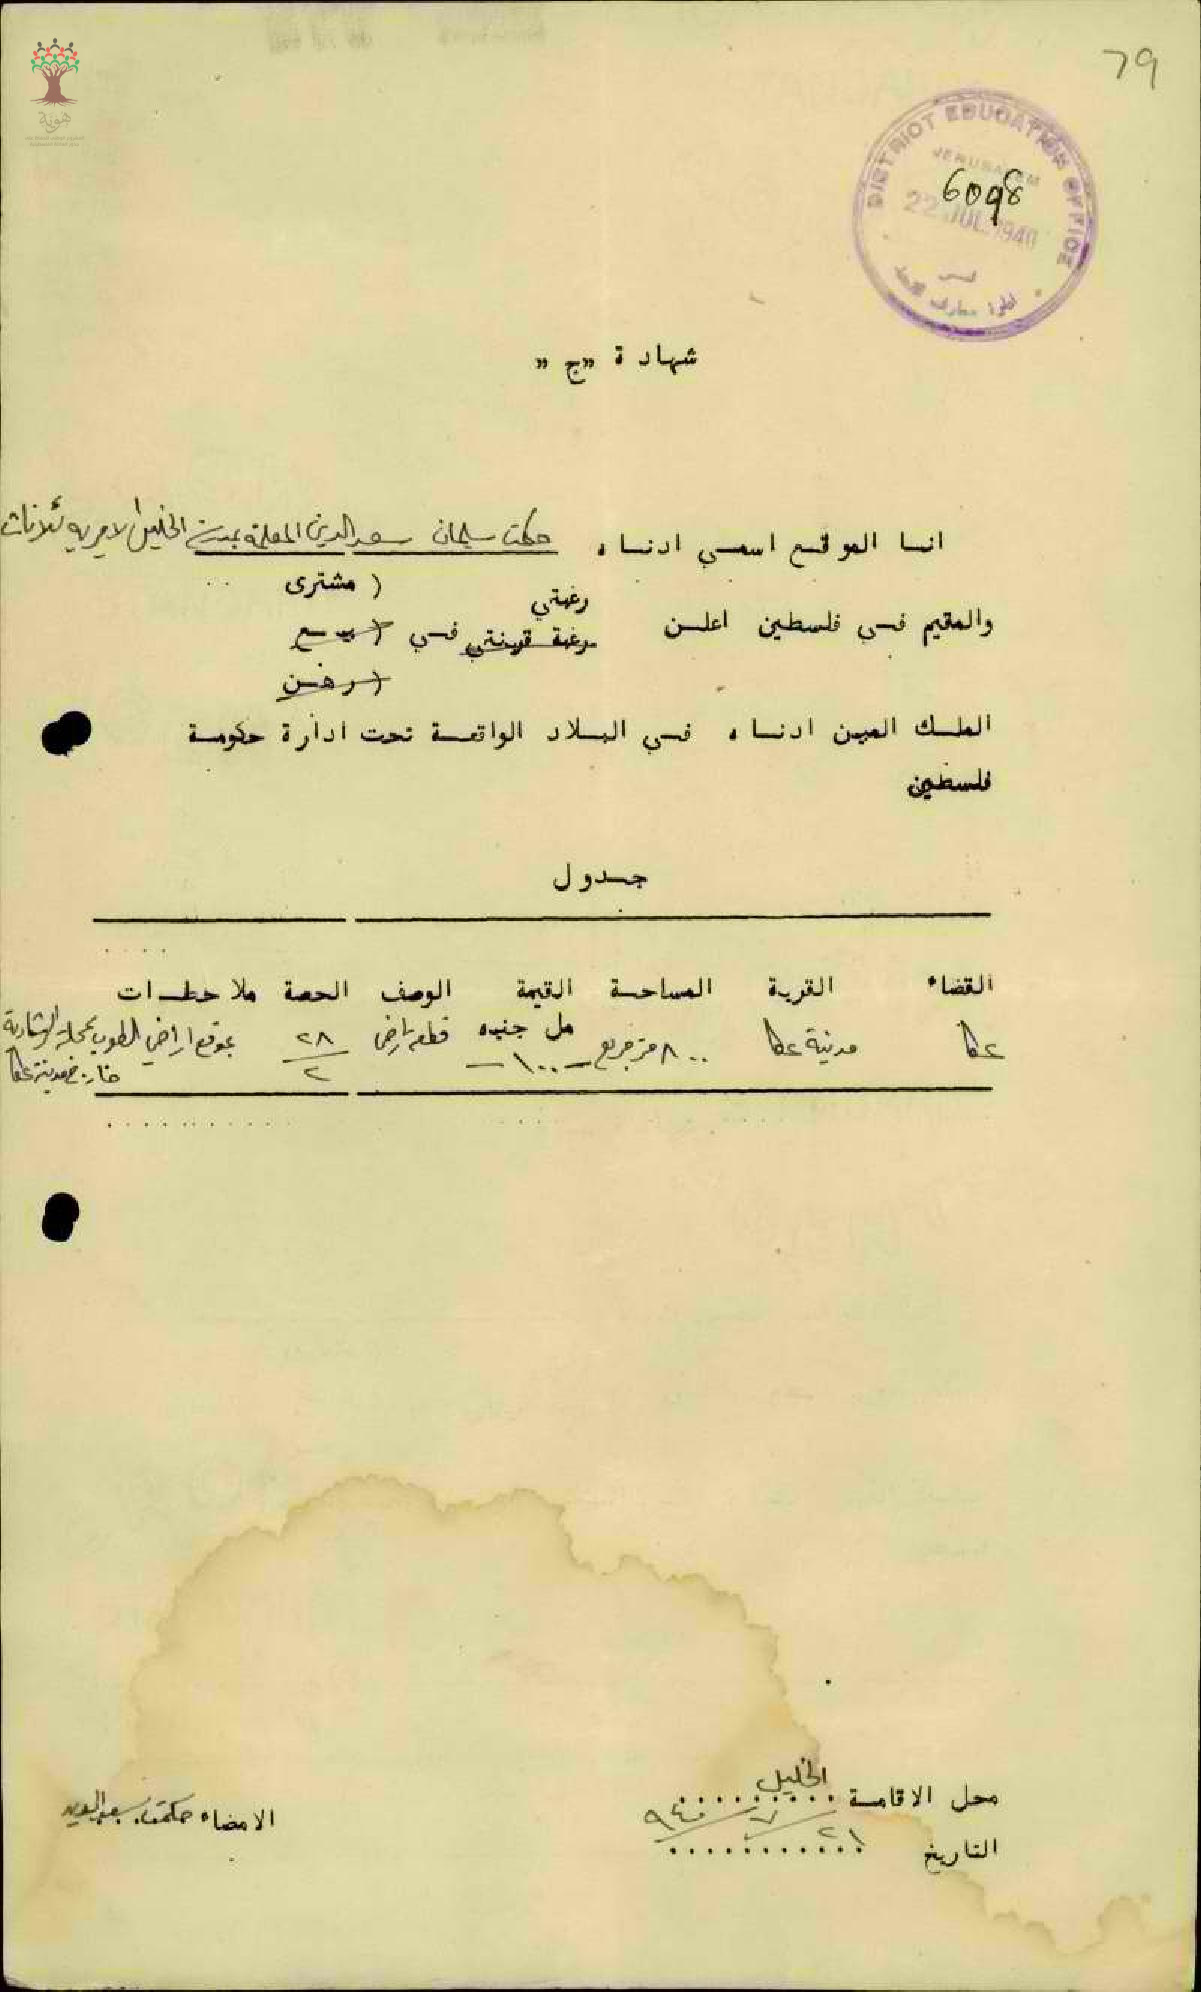 79
DISTRICT EDUCATION OFFICE
JERUSALEM
6098
22 JUL. 1940
هوية
شهادة "ج"
انا الموقع اسمي ادناه حكمت سليمان سعد الدين المعلمة بمدرسة الخليل الاميرية للبنات
( مشترى
رغبتي
والمقيم في فلسطين اعلن رغبة قرينتي في ( بيع
( رهن
الملك المبين ادناه في البلاد الواقعة تحت ادارة حكومة
فلسطين
جدول
القضاء القرية المساحة القيمة الوصف الحصة ملاحظات
مل جنيه
عكا مدينة عكا ٨٠٠ متر مربع ١٠٠ قطعة ارض ٢٨/٢ بموقع اراضي الطوب بمحلة الرشادية
خارج مدينة عكا
محل الاقامة الخليل
الامضاء حكمت سعد الدين
التاريخ ٢١/٧/٩٤٠